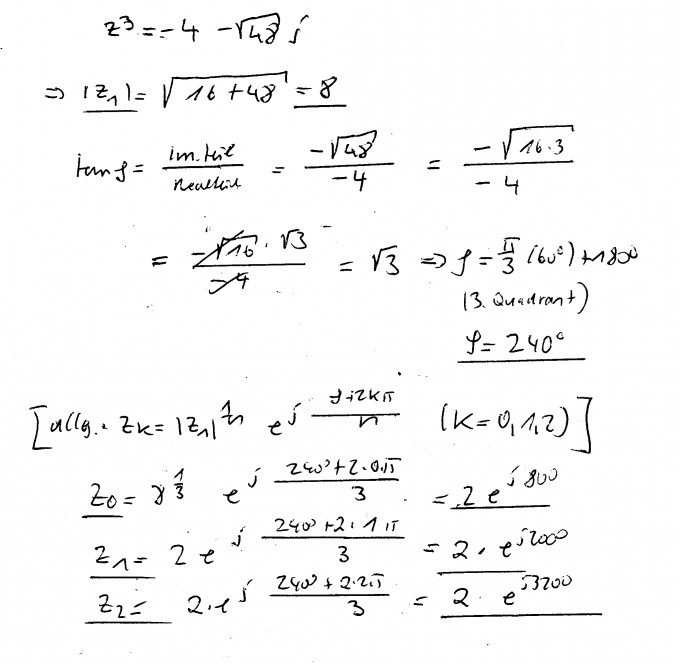 z³ = -4 - √48 j
⇒ |z₁| = √16+48 = 8
tan φ = im.teil / Realteil = -√48 / -4 = -√16·3 / -4
= -√16 · √3 / -4 = √3 ⇒ φ = π/3 (60°) + 180°
(3. Quadrant)
φ = 240°
[allg.: zK = |z₁|^1/n e^j (φ+2Kπ)/n (K=0,1,2)]
z₀ = 8^1/3 e^j (240°+2·0π)/3 = 2 e^j80°
z₁ = 2 e^j (240°+2·1π)/3 = 2 · e^j200°
z₂ = 2·e^j (240°+2·2π)/3 = 2 · e^j320°